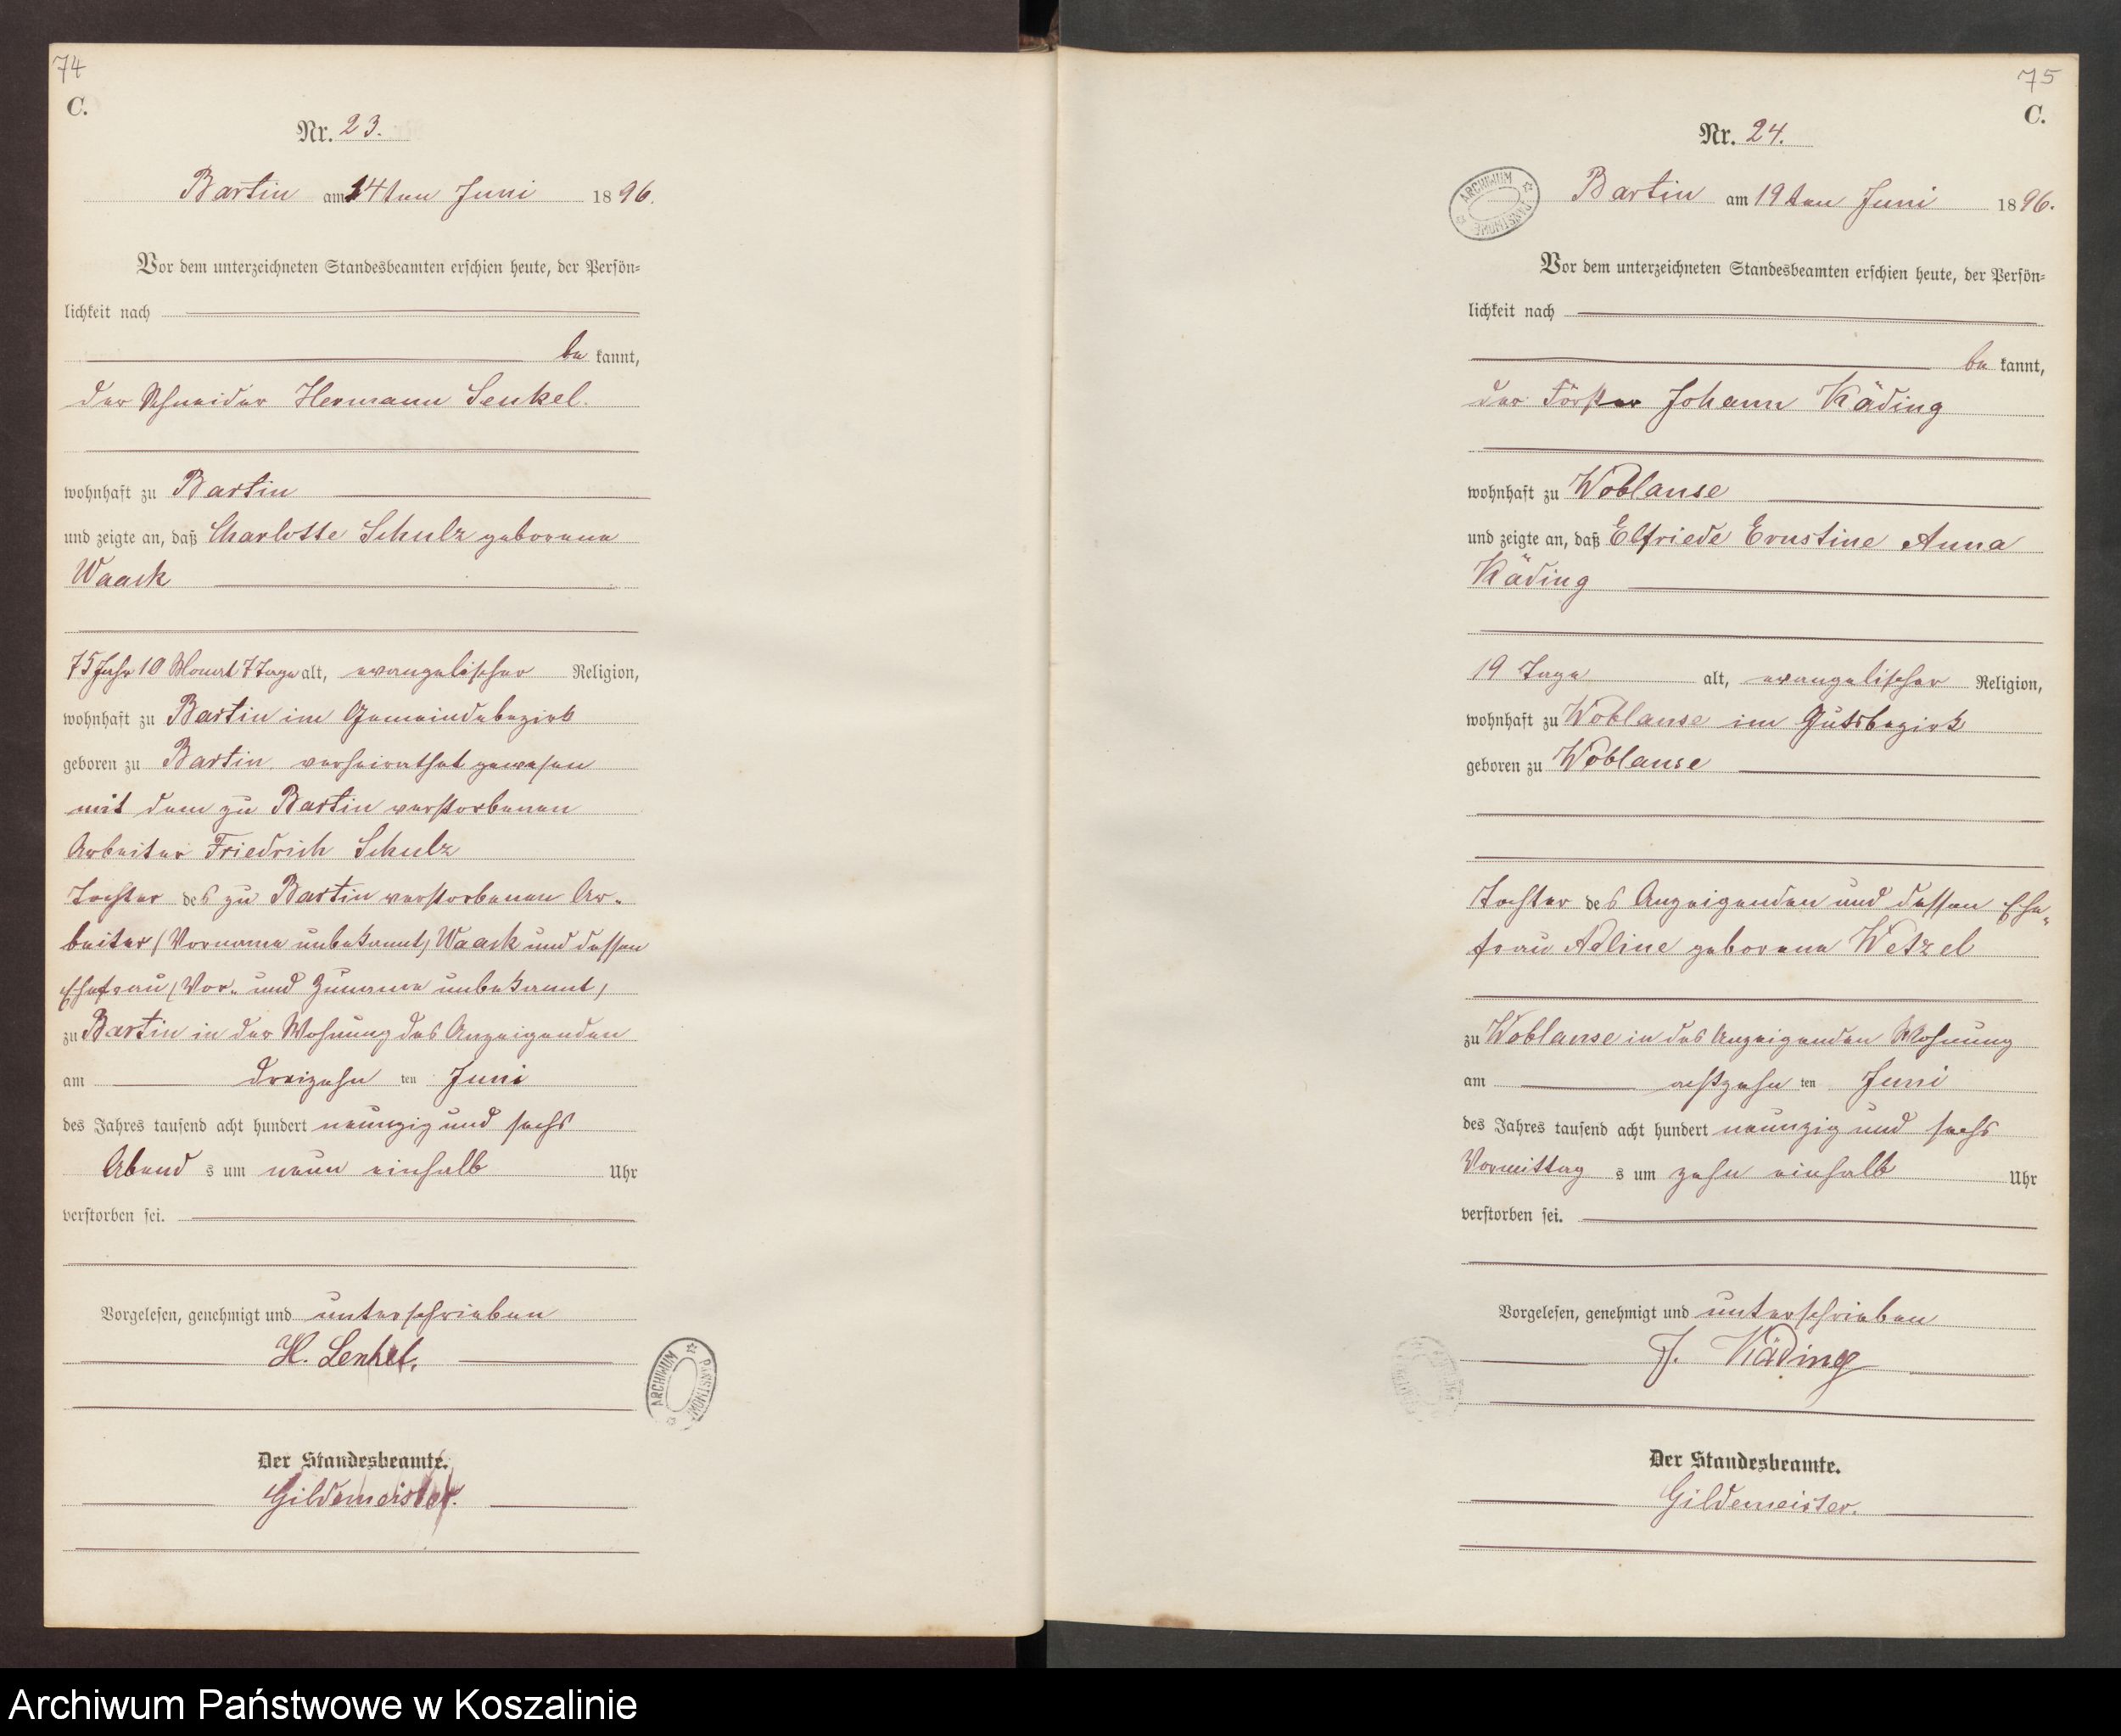 74
C.
Nr. 23.
Bartin am 14ten Juni 1896.
Vor dem unterzeichneten Standesbeamten erschien heute, der Persön=
lichkeit nach
be kannt,
der Schneider Hermann Lenkel.
wohnhaft zu Bartin
und zeigte an, daß Charlotte Schulz geborene
Waack
75 Jahr 10 Monat 7 Tage alt, evangelischer Religion,
wohnhaft zu Bartin im Gemeindebezirk
geboren zu Bartin, verheirathet gewesen
mit dem zu Bartin verstorbenen
Arbeiter Friedrich Schulz
Tochter des zu Bartin verstorbenen Ar-
beiter (Vorname unbekannt) Waack und dessen
Ehefrau (Vor- und Zuname unbekannt)
zu Bartin in der Wohnung des Anzeigenden
am dreizehn ten Juni
des Jahres tausend acht hundert neunzig und sechs
Abend s um neun einhalb Uhr
verstorben sei.
Vorgelesen, genehmigt und unterschrieben
H. Lenkel.
Der Standesbeamte.
Gildemeister.
ARCHIWUM PAŃSTWOWE
75
C.
Nr. 24.
ARCHIWUM PAŃSTWOWE
Bartin am 19ten Juni 1896.
Vor dem unterzeichneten Standesbeamten erschien heute, der Persön=
lichkeit nach
be kannt,
der Förster Johann Käding
wohnhaft zu Woblanse
und zeigte an, daß Elfriede Ernstine Anna
Käding
19 Tage alt, evangelischer Religion,
wohnhaft zu Woblanse im Gutsbezirk
geboren zu Woblanse
Tochter des Anzeigenden und dessen Ehe-
frau Adline geborene Wetzel
zu Woblanse in des Anzeigenden Wohnung
am achtzehn ten Juni
des Jahres tausend acht hundert neunzig und sechs
Vormittag s um zehn einhalb Uhr
verstorben sei.
Vorgelesen, genehmigt und unterschrieben
J. Käding
Der Standesbeamte.
Gildemeister.
Archiwum Państwowe w Koszalinie